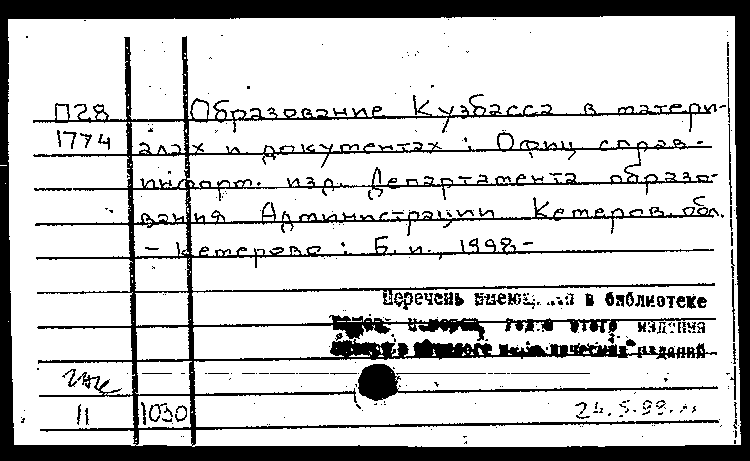 П28 Образование Кузбасса в матери-
1774 алах и документах : Офиц справ-
информ. изд. Департамента образо-
вания Администрации Кемеров. обл.
- Кемерово : Б. и., 1998 -
Перечень в библиотеке
номеров, года этого издания
в каталоге изданий
11 1030 24.5.99.